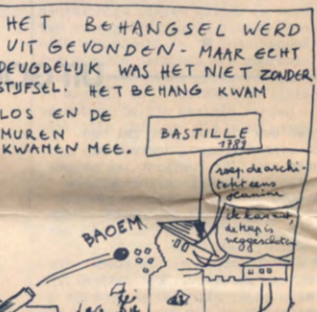 HET BEHANGSEL WERD
UIT GEVONDEN - MAAR ECHT
DEUGDELIJK WAS HET NIET ZONDER
STIJFSEL. HET BEHANG KWAM
LOS EN DE
MUREN
KWAMEN MEE.
BASTILLE
1789
roep de archi-
tekt eens
Jeanine
de trap is
weggeschoten
BAOEM